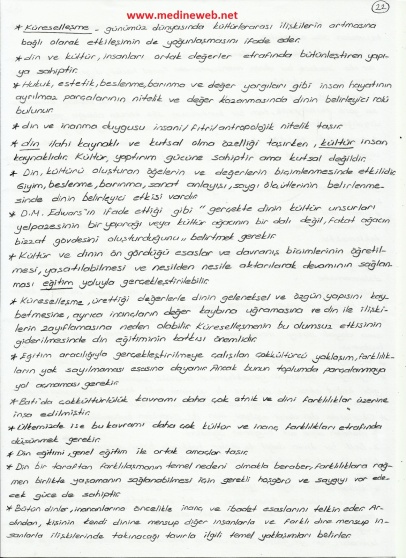 www.medineweb.net
22
* Küreselleşme - günümüz dünyasında kültürlerarası ilişkilerin artmasına
bağlı olarak etkileşimin de yoğunlaşmasını ifade eder.
* din ve kültür, insanları ortak değerler etrafında bütünleştiren yapı-
ya sahiptir.
* Hukuk, estetik, beslenme, barınma ve değer yargıları gibi insan hayatının
ayrılmaz parçalarının nitelik ve değer kazanmasında dinin belirleyici rolü
bulunur.
* din ve inanma duygusu insani/fıtri/antropolojik nitelik taşır.
* din ilahi kaynaklı ve kutsal olma özelliği taşırken, kültür insan
kaynaklıdır. Kültür, yaptırım gücüne sahiptir ama kutsal değildir.
* Din, kültürü oluşturan öğelerin ve değerlerin biçimlenmesinde etkilidir.
Giyim, beslenme, barınma, sanat anlayışı, saygı ölçütlerinin belirlenme-
sinde dinin belirleyici etkisi vardır
* D.M. Edwars'ın ifade ettiği gibi "gerçekte dinin kültür unsurları
yelpazesinin bir yaprağı veya kültür ağacının bir dalı değil, fakat ağacın
bizzat gövdesini oluşturduğunu,, belirtmek gerekir.
* Kültür ve dinin ön gördüğü esaslar ve davranış biçimlerinin öğretil-
mesi, yaşatılabilmesi ve nesilden nesile aktarılarak devamının sağlan-
ması eğitim yoluyla gerçekleştirilebilir.
* Küreselleşme, ürettiği değerlerle dinin geleneksel ve özgün yapısını kay-
betmesine, ayrıca inançların değer kaybına uğramasına ve din ile ilişki-
lerin zayıflamasına neden olabilir. Küreselleşmenin bu olumsuz etkisinin
giderilmesinde din eğitiminin katkısı önemlidir.
* Eğitim aracılığıyla gerçekleştirilmeye çalışılan çokkültürcü yaklaşım, farklılık-
ların yok sayılmaması esasına dayanır. Ancak bunun toplumda parçalanmaya
yol açmaması gerekir.
* Batı'da çokkültürlülük kavramı daha çok etnik ve dini farklılıklar üzerine
inşa edilmiştir.
* Ülkemizde ise bu kavramı daha çok kültür ve inanç farklılıkları etrafında
düşünmek gerekir.
* Din eğitimi, genel eğitim ile ortak amaçlar taşır.
* Din bir taraftan farklılaşmanın temel nedeni olmakla beraber, farklılıklara rağ-
men birlikte yaşamanın sağlanabilmesi için gerekli hoşgörü ve saygıyı var ede-
cek güce de sahiptir.
* Bütün dinler, inananlarına öncelikle inanç ve ibadet esaslarını telkin eder. Ar-
dından, kişinin kendi dinine mensup diğer insanlarla ve farklı dine mensup in-
sanlarla ilişkilerinde takınacağı tavırla ilgili temel yaklaşımları belirler.